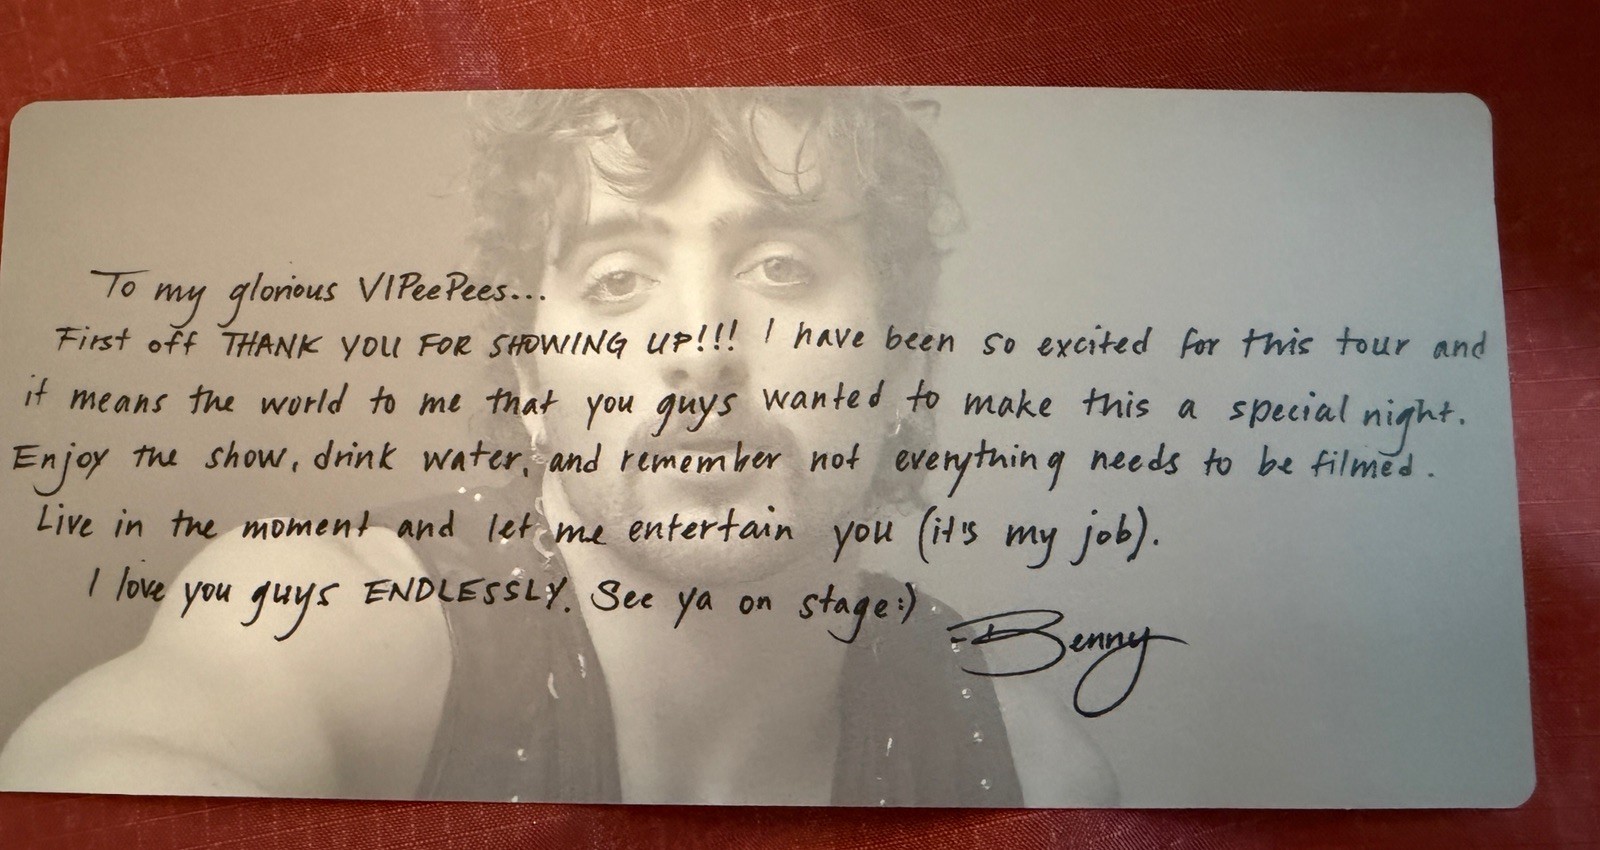 To my glorious VIPeePees...
First off THANK YOU FOR SHOWING UP!!! I have been so excited for this tour and
it means the world to me that you guys wanted to make this a special night.
Enjoy the show, drink water, and remember not everything needs to be filmed.
Live in the moment and let me entertain you (it's my job).
I love you guys ENDLESSLY. See ya on stage:)
-Benny